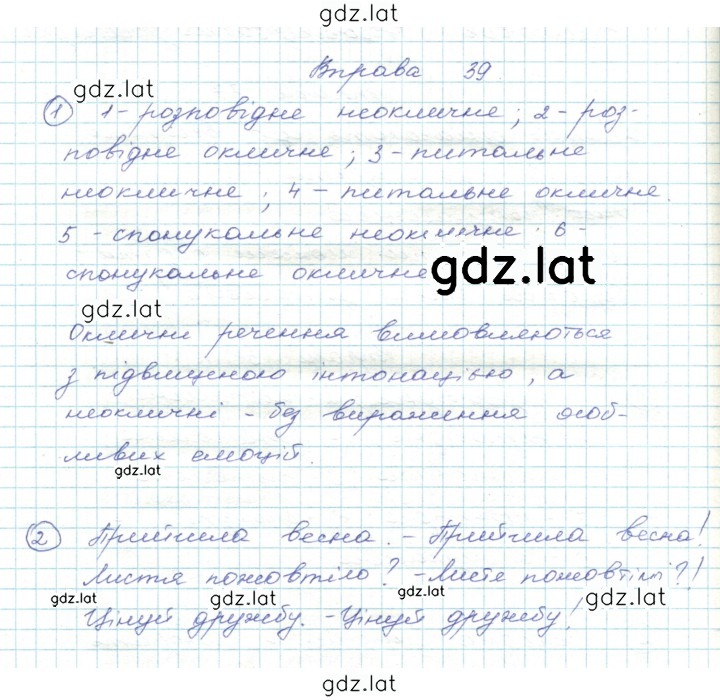 gdz.lat
Вправа 39
gdz.lat
1 1 - розповідне неокличне; 2 - роз-
повідне окличне; 3 - питальне
неокличне; 4 - питальне окличне.
5 - спонукальне неокличне. 6 -
спонукальне окличне
gdz.lat
gdz.lat
Окличні речення вимовляються
з підвищеною інтонацією, а
неокличні - без вираження особ-
ливих емоцій.
gdz.lat
2 Прийшла весна. - Прийшла весна!
Листя пожовтіло? - Листя пожовтіло?!
gdz.lat gdz.lat gdz.lat gdz.lat
Цінуй дружбу. - Цінуй дружбу!
gdz.lat